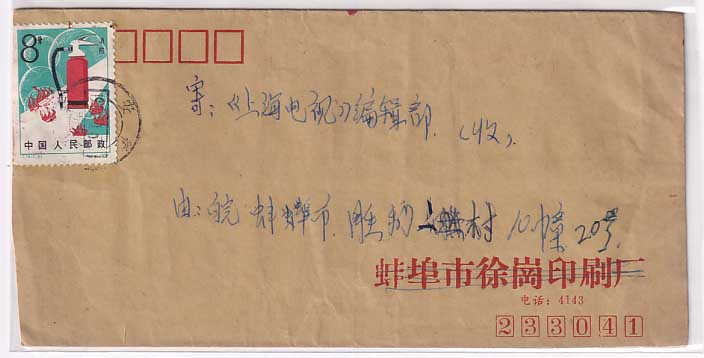 8分
消防
中国人民郵政
寄：《上海电视》编辑部.（收）.
由：皖 市. 村 10幢 20号.
蚌埠市徐岗印刷厂
电话：4143
233041